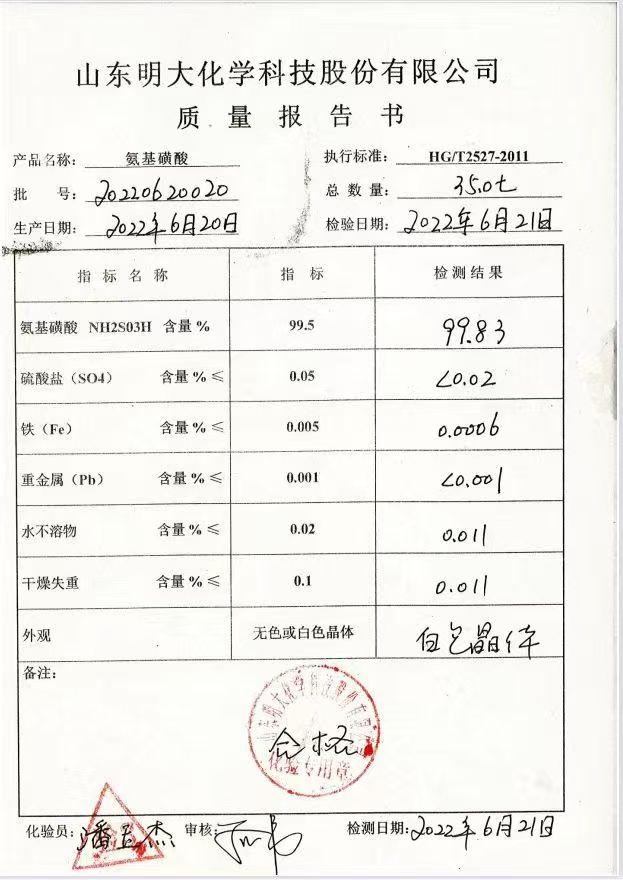 山东明大化学科技股份有限公司
质量报告书
产品名称: 氨基磺酸 执行标准: HG/T2527-2011
批 号: 20220620020 总数量: 35.0t
生产日期: 2022年6月20日 检验日期: 2022年6月21日
指标名称 指标 检测结果
氨基磺酸 NH2S03H 含量% 99.5 99.83
硫酸盐（SO4） 含量%≤ 0.05 <0.02
铁（Fe） 含量%≤ 0.005 0.0006
重金属（Pb） 含量%≤ 0.001 <0.001
水不溶物 含量%≤ 0.02 0.011
干燥失重 含量%≤ 0.1 0.011
外观 无色或白色晶体 白色晶体
备注:
山东明大化学科技股份有限公司
合格
化验专用章
化验员: 潘玉杰 审核: 检测日期: 2022年6月21日